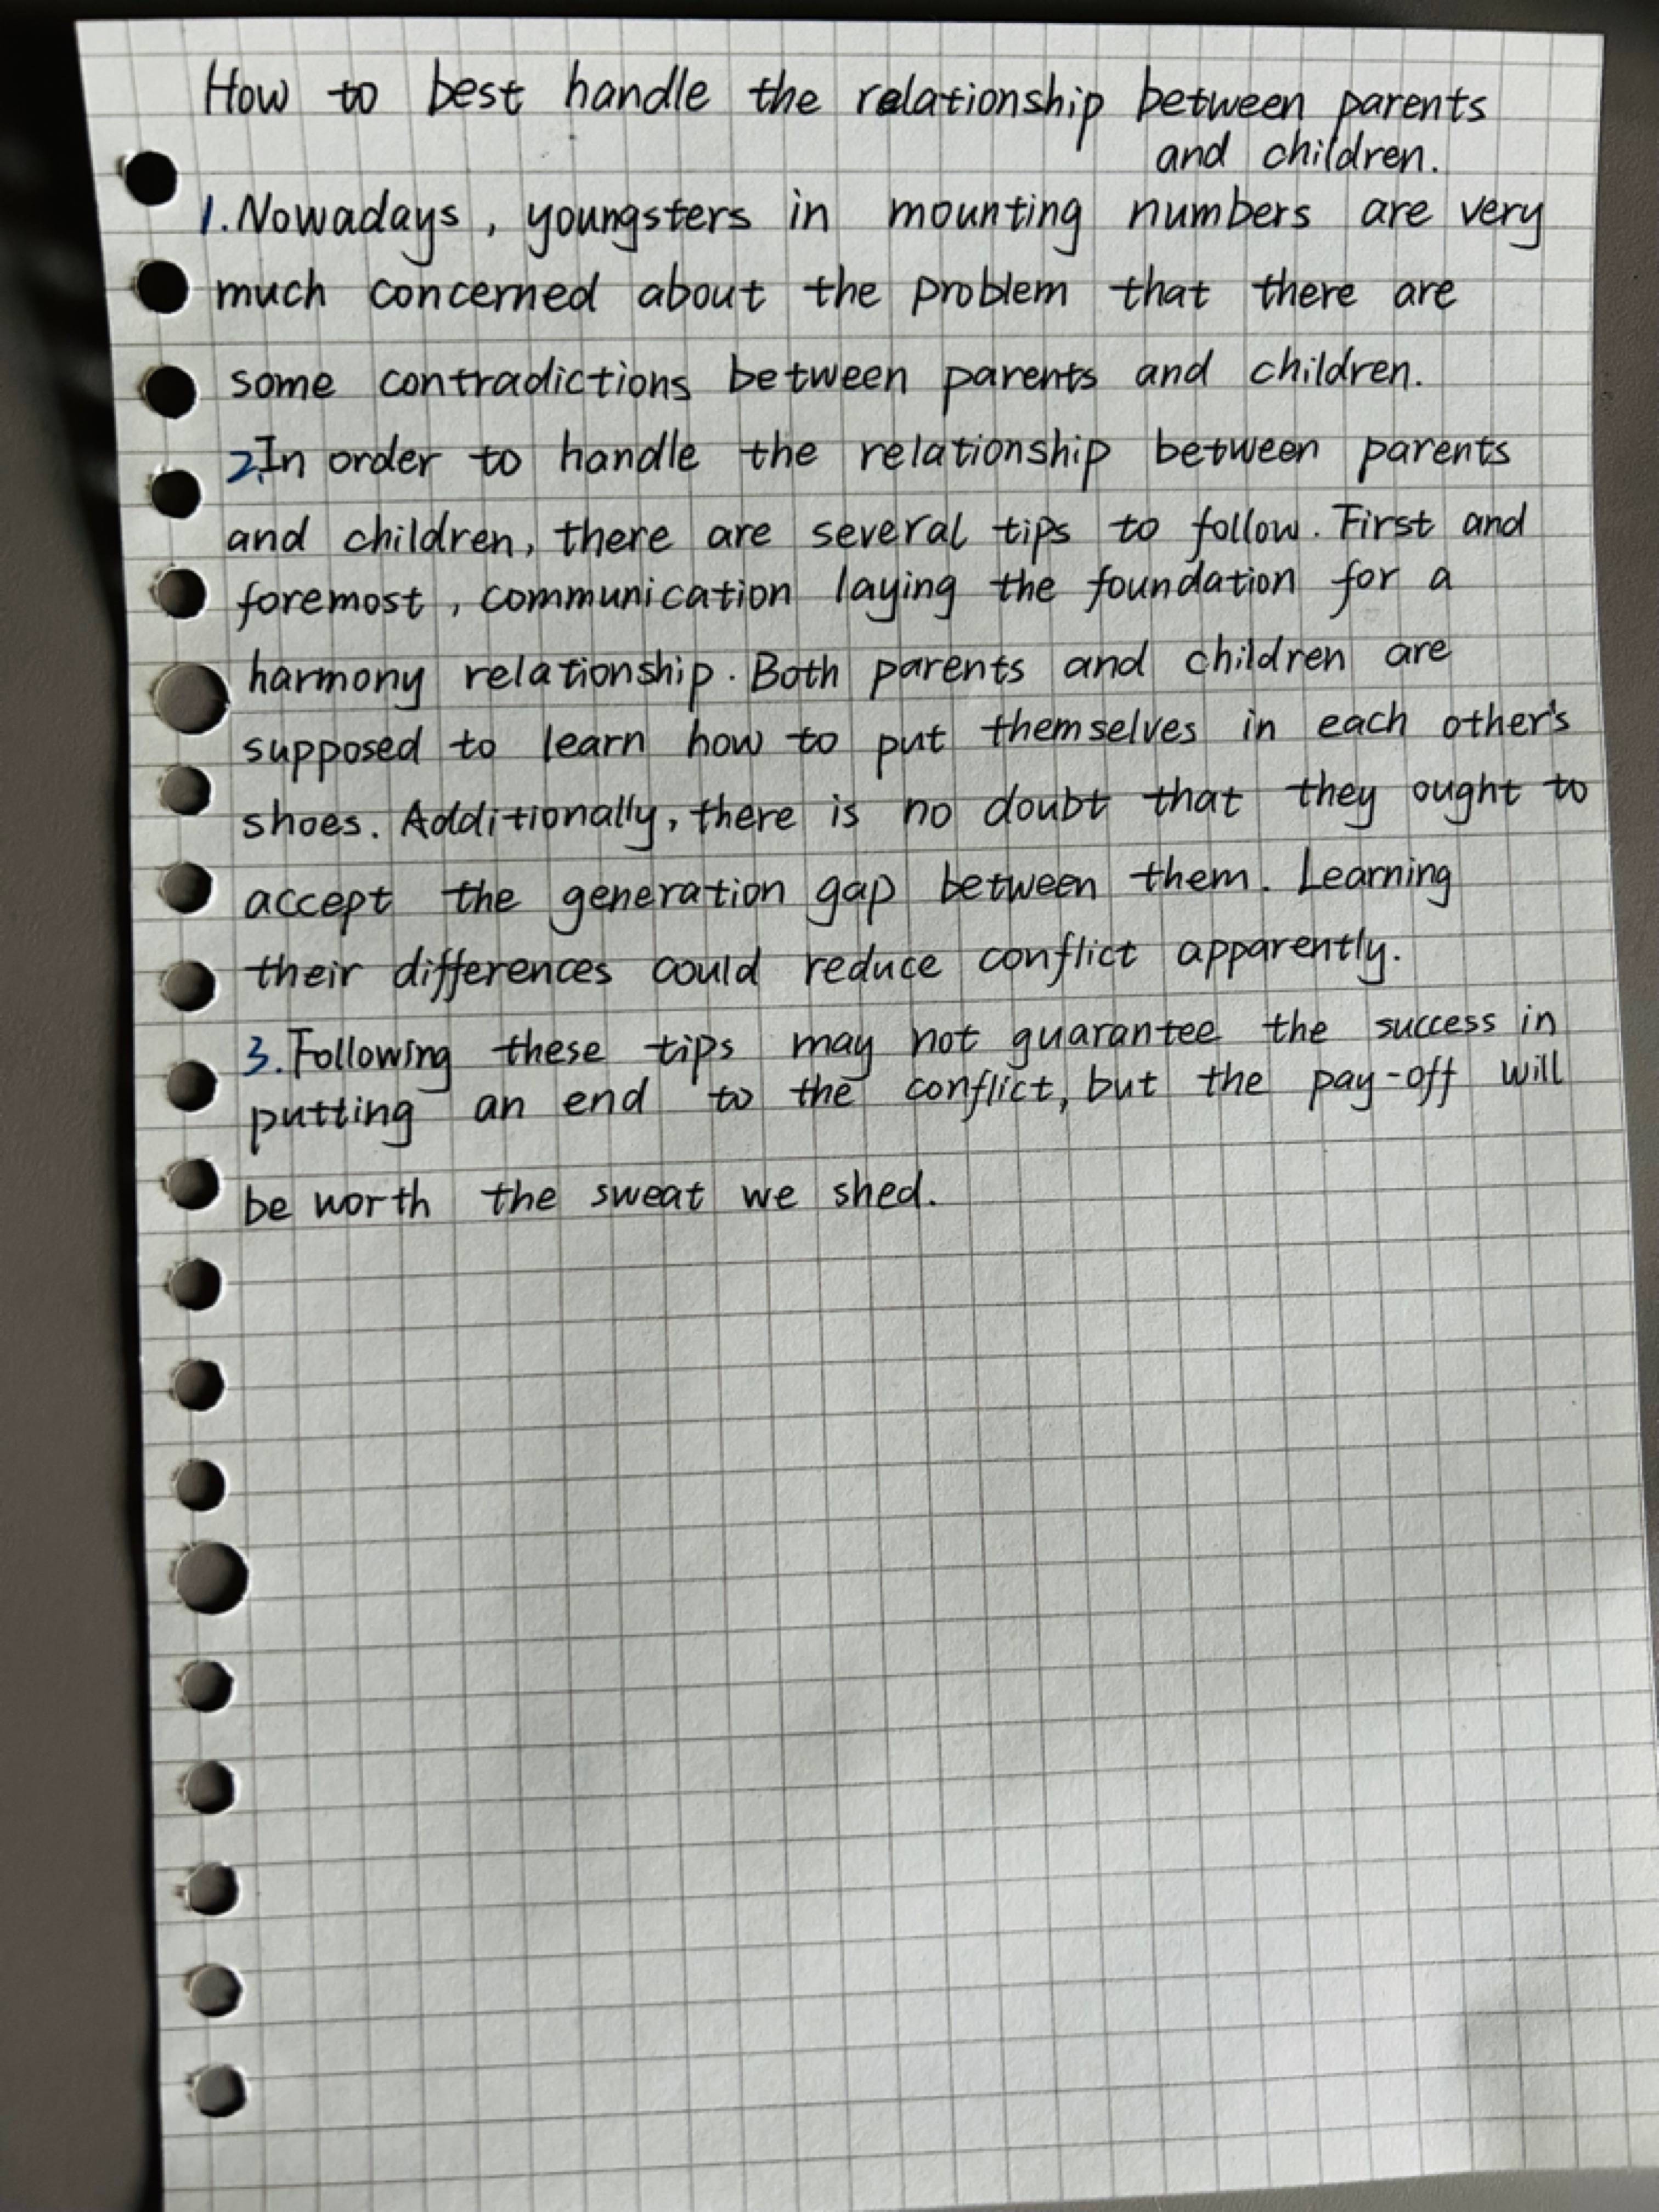 How to best handle the relationship between parents
and children.
1. Nowadays, youngsters in mounting numbers are very
much concerned about the problem that there are
some contradictions between parents and children.
2. In order to handle the relationship between parents
and children, there are several tips to follow. First and
foremost, communication laying the foundation for a
harmony relationship. Both parents and children are
supposed to learn how to put themselves in each other's
shoes. Additionally, there is no doubt that they ought to
accept the generation gap between them. Learning
their differences could reduce conflict apparently.
3. Following these tips may not guarantee the success in
putting an end to the conflict, but the pay-off will
be worth the sweat we shed.